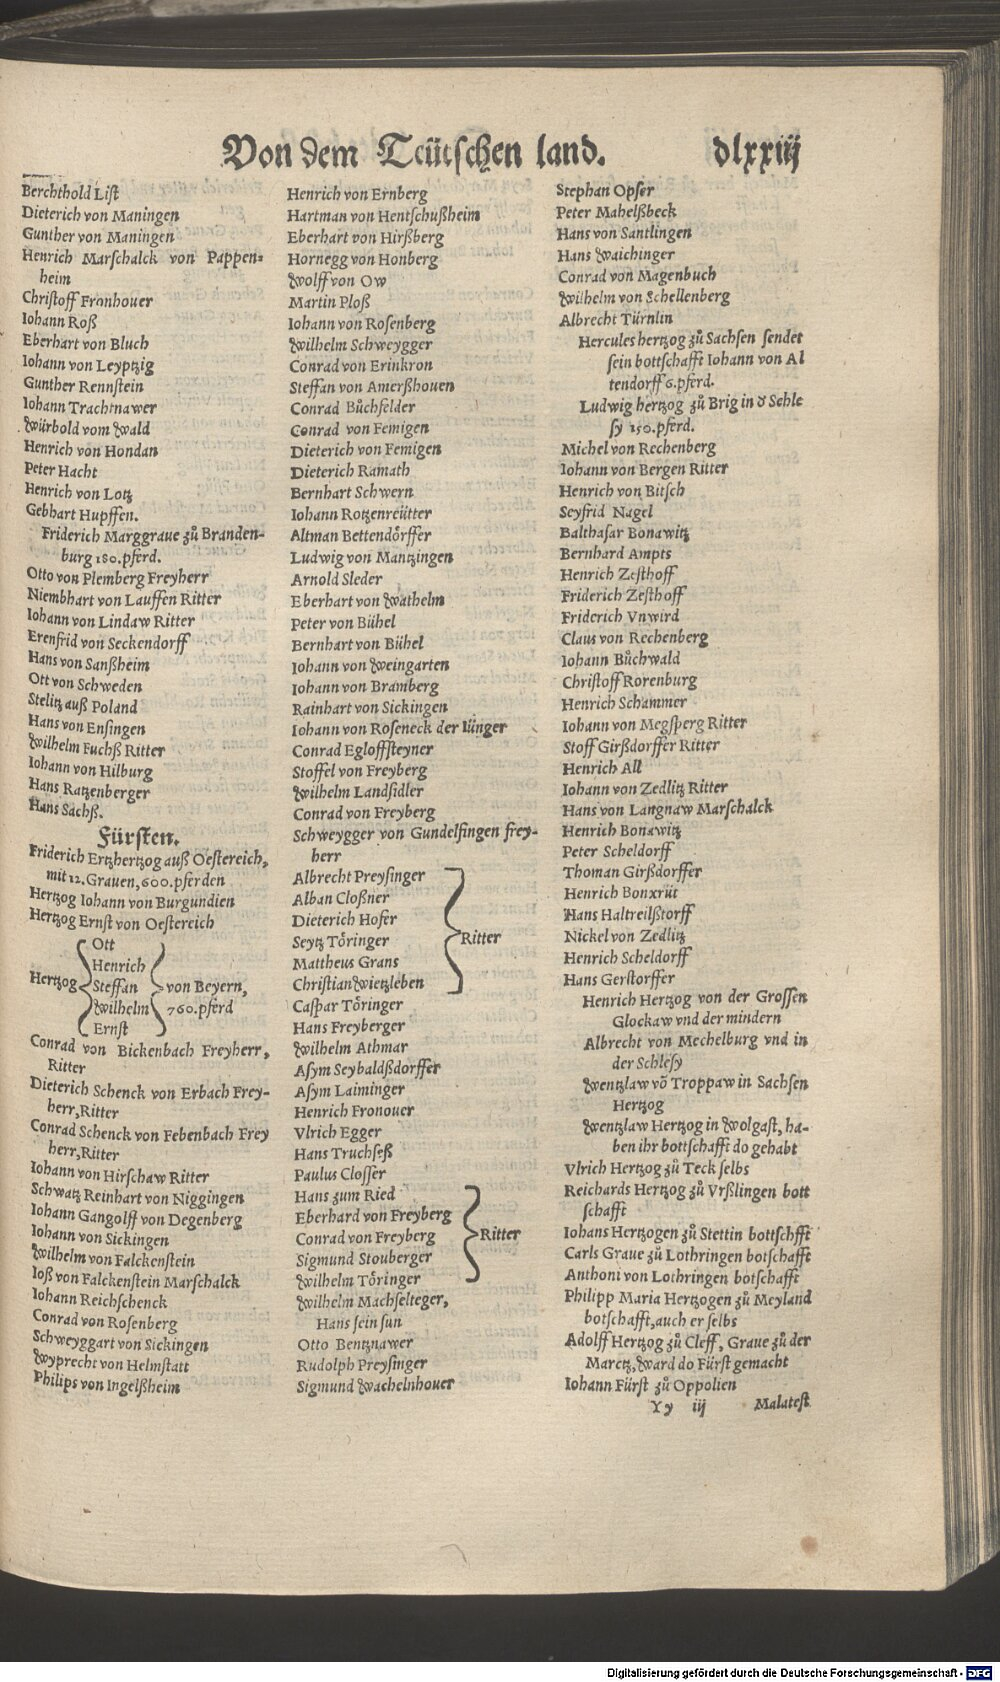 Von dem Teütschen land. dlxxiij
Berchthold List
Dieterich von Maningen
Gunther von Maningen
Henrich Marschalck von Pappen-
heim
Christoff Fronhouer
Iohann Roß
Eberhart von Bluch
Iohann von Leyptzig
Gunther Rennstein
Iohann Trachtnawer
Würbold vom Wald
Henrich von Hondan
Peter Hacht
Henrich von Lotz
Gebhart Hupffen.
Friderich Marggraue zů Branden-
burg 180. pferd.
Otto von Plemberg Freyherr
Niembhart von Lauffen Ritter
Iohann von Lindaw Ritter
Erenfrid von Seckendorff
Hans von Sanßheim
Ott von Schweden
Stelitz auß Poland
Hans von Ensingen
Wilhelm Fuchß Ritter
Iohann von Hilburg
Hans Ratzenberger
Hans Sachß.
Fürsten.
Friderich Ertzhertzog auß Oestereich,
mit 12. Grauen, 600. pferden
Hertzog Iohann von Burgundien
Hertzog Ernst von Oestereich
Ott
Henrich
Hertzog Steffan von Beyern,
Wilhelm 760. pferd
Ernst
Conrad von Bickenbach Freyherr,
Ritter
Dieterich Schenck von Erbach Frey-
herr, Ritter
Conrad Schenck von Febenbach Frey
herr, Ritter
Iohann von Hirschaw Ritter
Schwatz Reinhart von Niggingen
Iohann Gangolff von Degenberg
Iohann von Sickingen
Wilhelm von Falckenstein
Ioß von Falckenstein Marschalck
Iohann Reichschenck
Conrad von Rosenberg
Schweyggart von Sickingen
Wyprecht von Helmstatt
Philips von Ingelßheim
Henrich von Ernberg
Hartman von Hentschußheim
Eberhart von Hirßberg
Hornegg von Honberg
Wolff von Ow
Martin Ploß
Iohann von Rosenberg
Wilhelm Schweygger
Conrad von Erinkron
Steffan von Amerßhouen
Conrad Bůchfelder
Conrad von Femigen
Dieterich von Femigen
Dieterich Ramath
Bernhart Schwern
Iohann Rotzenreütter
Altman Bettendörffer
Ludwig von Mantzingen
Arnold Sleder
Eberhart von Wathelm
Peter von Bühel
Bernhart von Bühel
Iohann von Weingarten
Iohann von Bramberg
Rainhart von Sickingen
Iohann von Roseneck der Iünger
Conrad Egloffsteyner
Stoffel von Freyberg
Wilhelm Landsidler
Conrad von Freyberg
Schweygger von Gundelfingen frey-
herr
Albrecht Preysinger
Alban Cloßner
Dieterich Hofer
Seytz Töringer Ritter
Mattheus Grans
Christian Wietzleben
Caspar Töringer
Hans Freyberger
Wilhelm Athmar
Asym Seybaldßdorffer
Asym Laiminger
Henrich Fronouer
Vlrich Egger
Hans Truchseß
Paulus Closser
Hans zum Ried
Eberhard von Freyberg
Conrad von Freyberg Ritter
Sigmund Stouberger
Wilhelm Töringer
Wilhelm Machselteger,
Hans sein sun
Otto Bentznawer
Rudolph Preysinger
Sigmund Wachelnhouer
Stephan Opser
Peter Mahelßbeck
Hans von Santlingen
Hans Waichinger
Conrad von Magenbuch
Wilhelm von Schellenberg
Albrecht Türnlin
Hercules hertzog zů Sachsen sendet
sein bottschafft Iohann von Al
tendorff 6. pferd.
Ludwig hertzog zů Brig in d Schle
sy 150. pferd.
Michel von Rechenberg
Iohann von Bergen Ritter
Henrich von Bitsch
Seyfrid Nagel
Balthasar Bonawitz
Bernhard Ampts
Henrich Zesthoff
Friderich Zesthoff
Friderich Vnwird
Claus von Rechenberg
Iohann Bůchwald
Christoff Rorenburg
Henrich Schammer
Iohann von Megsperg Ritter
Stoff Girßdorffer Ritter
Henrich All
Iohann von Zedlitz Ritter
Hans von Langnaw Marschalck
Henrich Bonawitz
Peter Scheldorff
Thoman Girßdorffer
Henrich Bonxrüt
Hans Haltreilßtorff
Nickel von Zedlitz
Henrich Scheldorff
Hans Gerstorffer
Henrich Hertzog von der Grossen
Glockaw vnd der mindern
Albrecht von Mechelburg vnd in
der Schlesy
Wentzlaw võ Troppaw in Sachsen
Hertzog
Wentzlaw Hertzog in Wolgast, ha-
ben ihr bottschafft do gehabt
Vlrich Hertzog zů Teck selbs
Reichards Hertzog zů Vrßlingen bott
schafft
Iohans Hertzogen zů Stettin bottschfft
Carls Graue zů Lothringen botschafft
Anthoni von Lothringen botschafft
Philipp Maria Hertzogen zů Meyland
botschafft, auch er selbs
Adolff Hertzog zů Cleff, Graue zů der
Marctz, Ward do Fürst gemacht
Iohann Fürst zů Oppolien
Yy iij Malatest
Digitalisierung gefördert durch die Deutsche Forschungsgemeinschaft - DFG